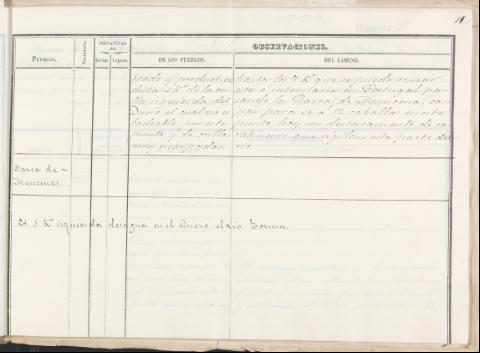 11
PUEBLOS.
Vecindario.
DISTANCIAS EN
Kilóm.
Leguas.
OBSERVACIONES.
DE LOS PUEBLOS.
DEL CAMINO.
trado y productivo
dista 5 K. de la orilla izquierda del
Duero el cual no es
badeable por este
punto, y de orillas
muy escarpadas.
hasta los 7 K. que se puede
e internarse en Portugal pasando la Barca de
paz para 10 a 12 caballos; en este
punto hay un destacamento de carabineros que vigilan esta parte del
rio.
Barca de
A 3 K. izquierda desagua en el Duero el rio Tormes.